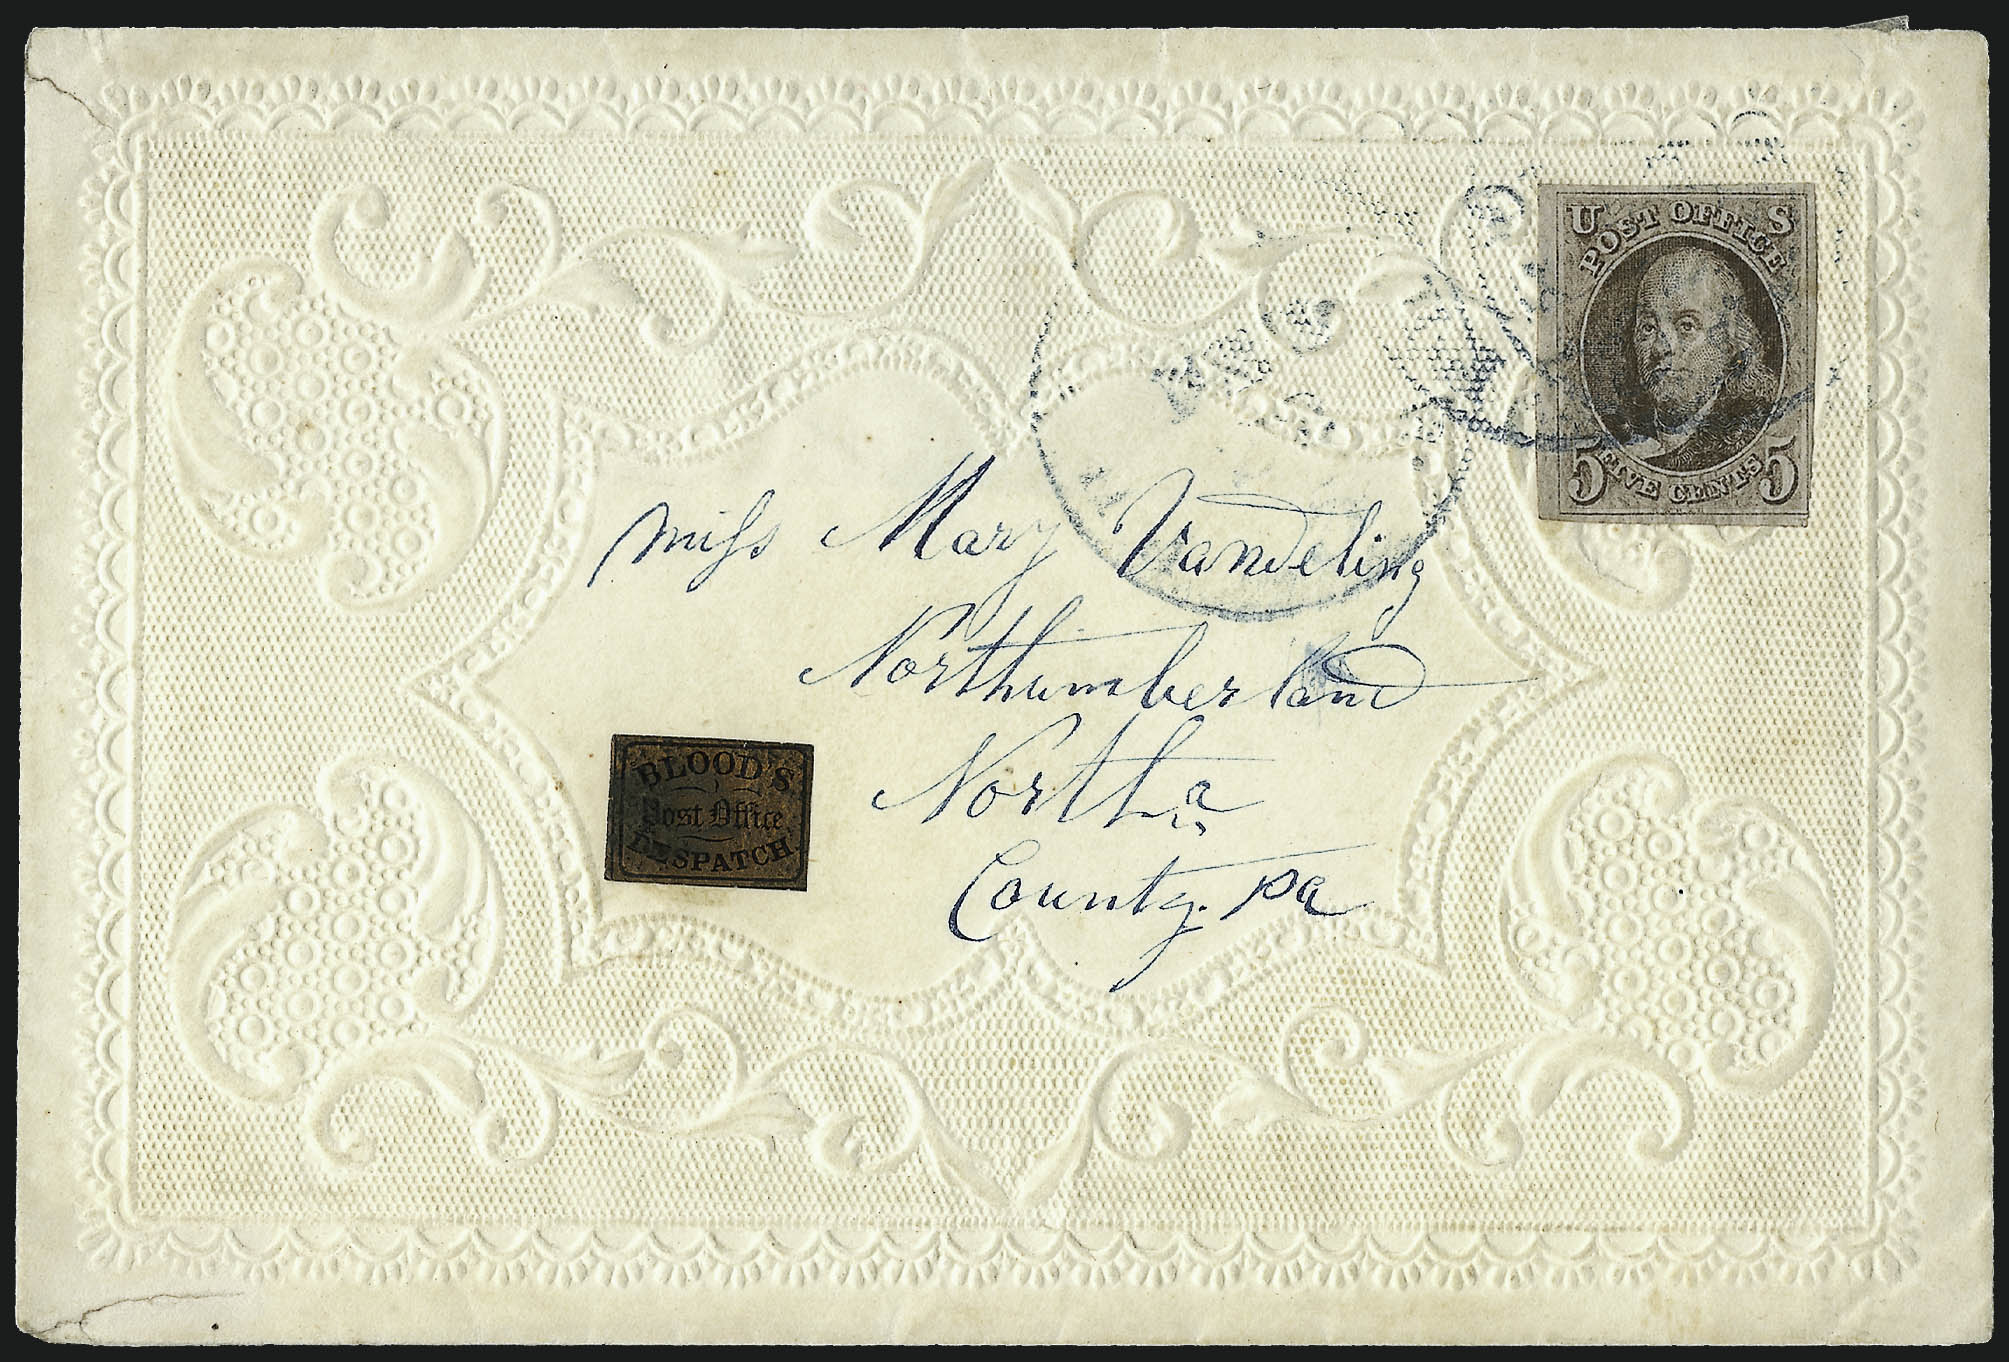 U S
POST OFFICE
5 FIVE CENTS 5
miss Mary Vandeling
Northumberland
North a
County. Pa
BLOOD'S
Post Office
DESPATCH